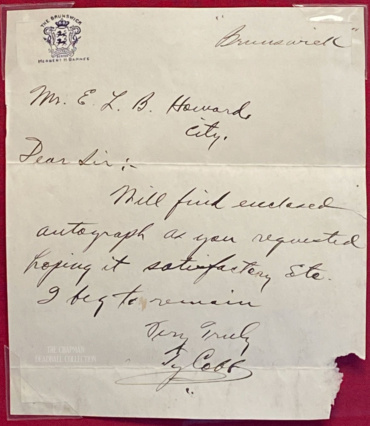 THE BRUNSWICK
HERBERT H BARNES
"Brunswick"
Mr. E. L. B. Howard,
City.
Dear Sir:-
Will find enclosed
autograph as you requested
hoping it satisfactory, Etc.
I beg to remain
Very Truly
Ty Cobb
THE CHAPMAN
DEADBALL COLLECTION